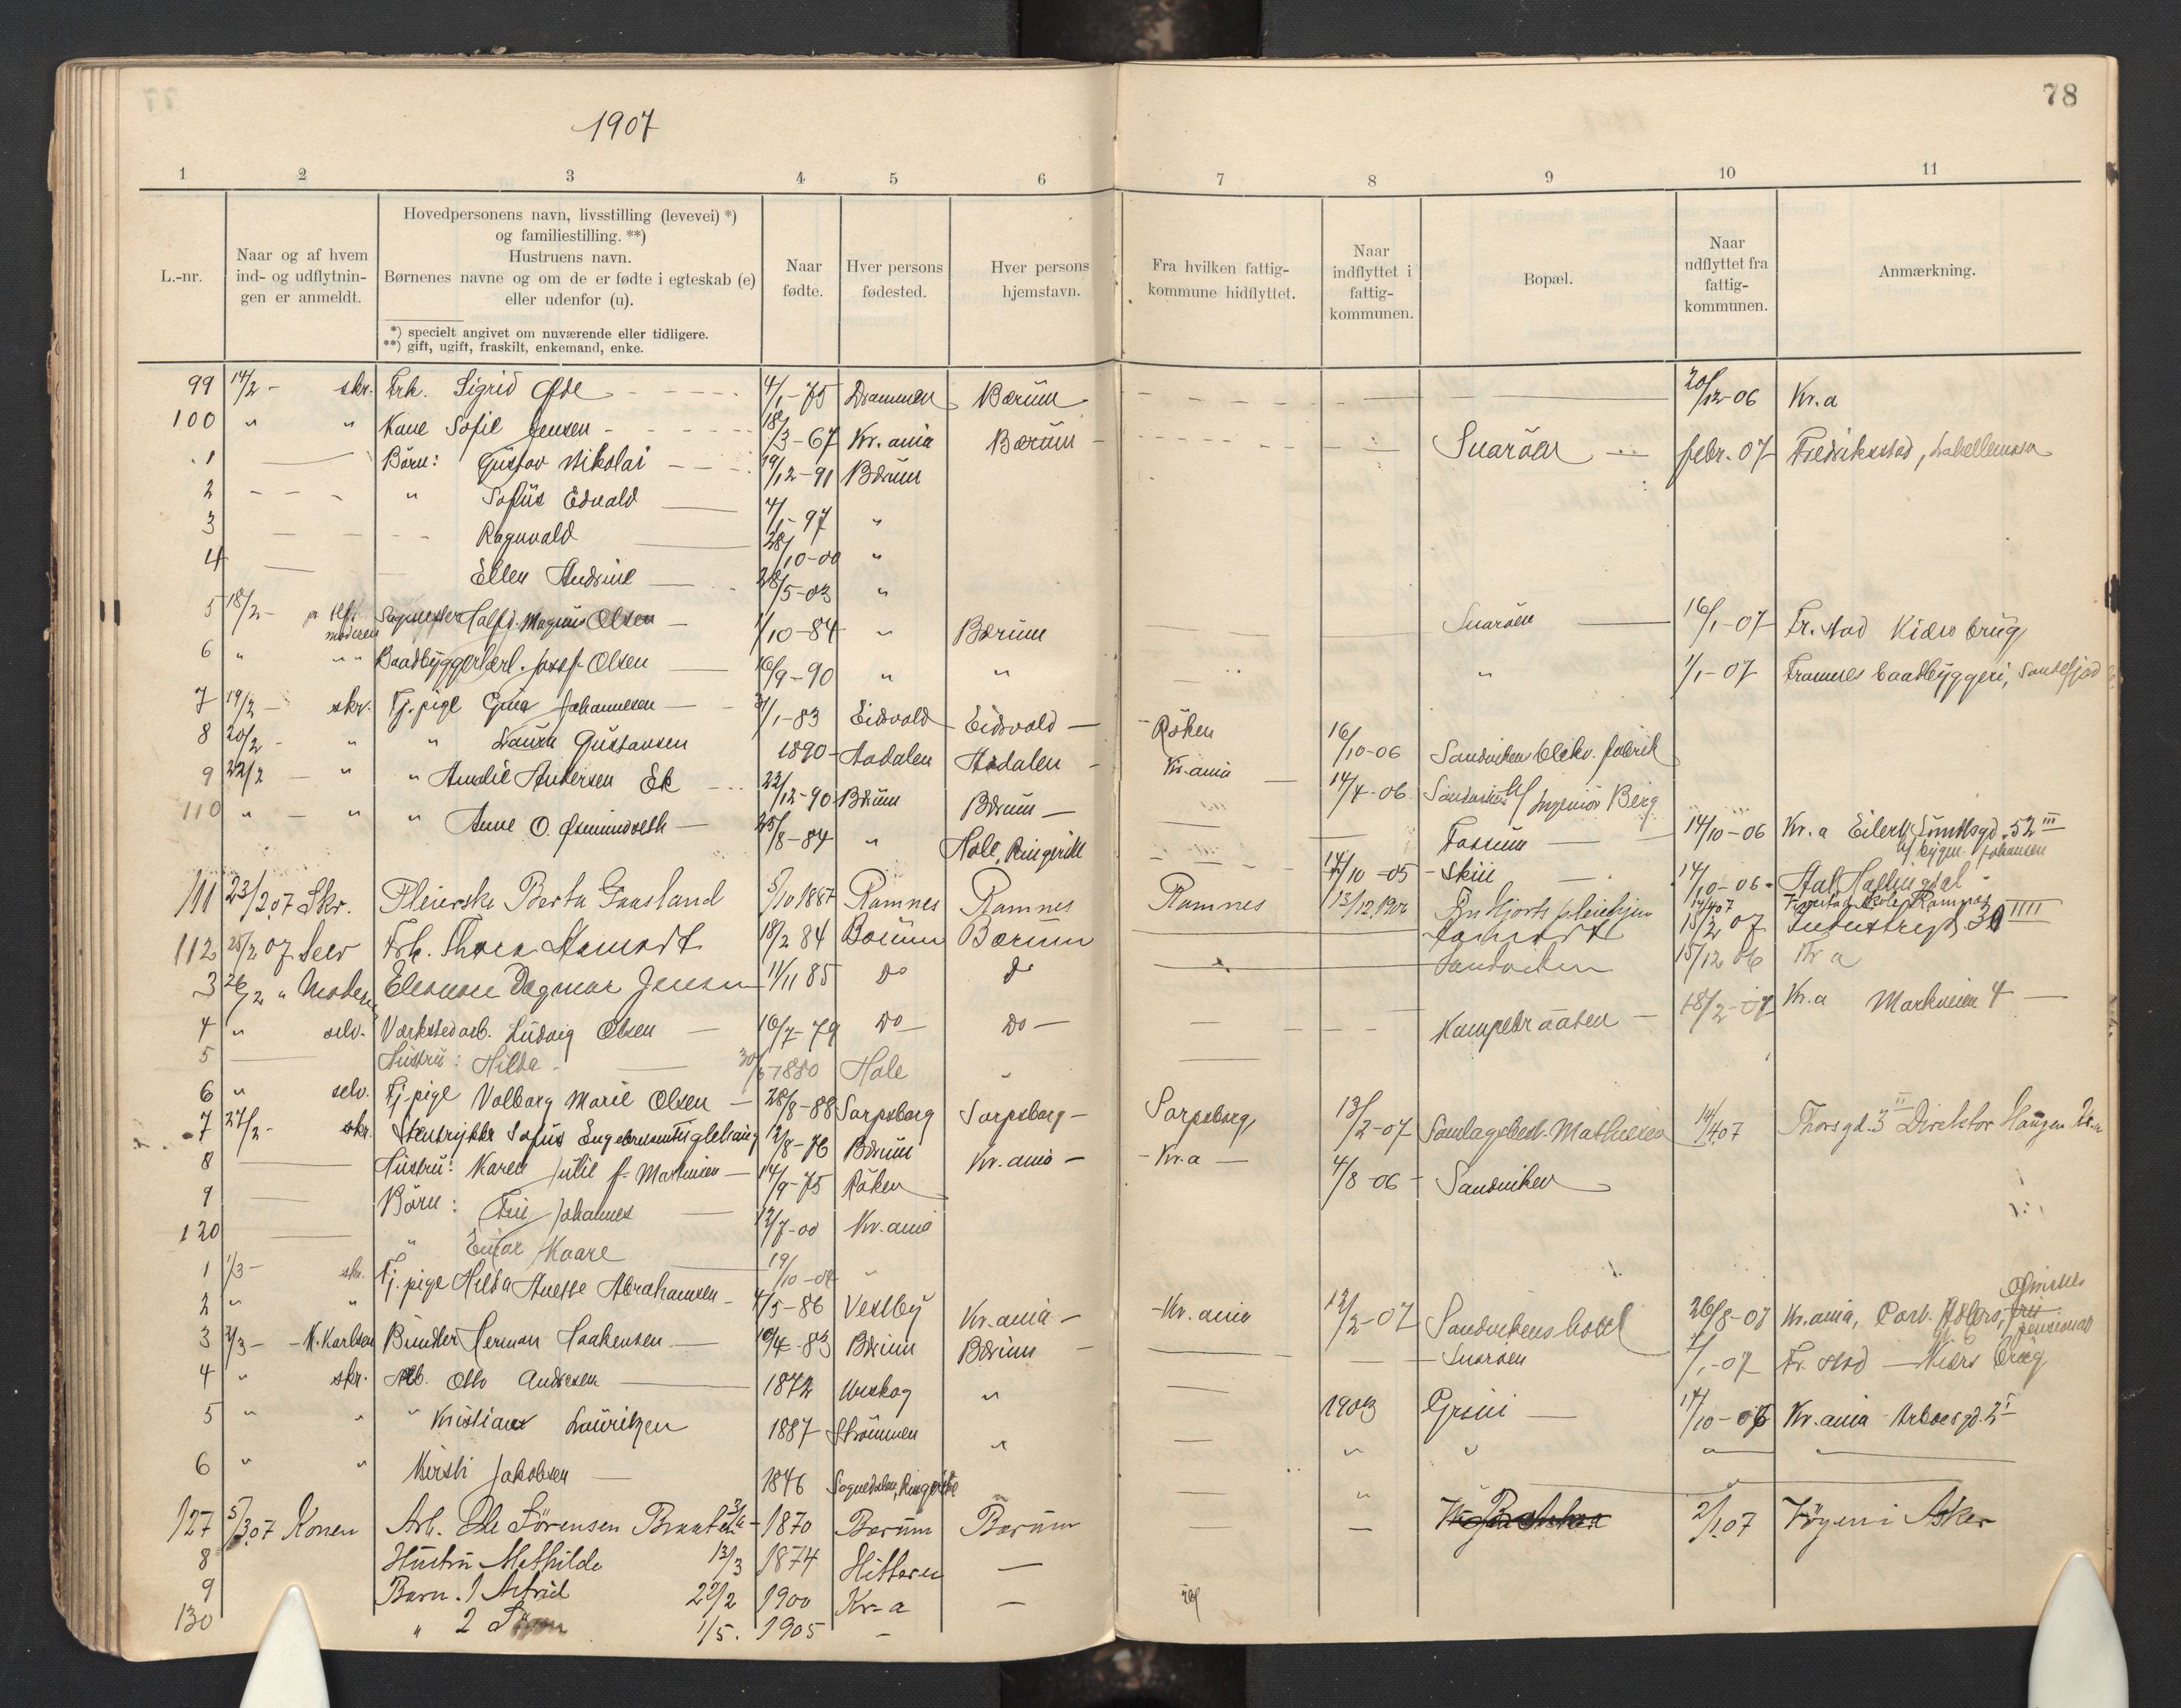 78
1907
1 2 3 4 5 6 7 8 9 10 11
L.-nr.
Naar og af hvem
ind- og udflytnin-
gen er anmeldt.
Hovedpersonens navn, livsstilling (levevei) *)
og familiestilling. **)
Hustruens navn.
Børnenes navne og om de er fødte i egteskab (e)
eller udenfor (u).
*) specielt angivet om nuværende eller tidligere.
**) gift, ugift, fraskilt, enkemand, enke.
Naar
fødte.
Hver persons
fødested.
Hver persons
hjemstavn.
Fra hvilken fattig-
kommune hidflyttet.
Naar
indflyttet i
fattig-
kommunen.
Bopæl.
Naar
udflyttet fra
fattig-
kommunen.
Anmærkning.
99 14/2 - skr. Frk. Sigrid 4/1-75 Drammen Bærum 20/12-06 Kr.a
100 " " Kone Sofie Jensen 18/3-67 Kr.ania Bærum Snarøen febr. 07 Fredriksstad,
1 Börn: Gustav Nikolai 19/12-91 Bærum
2 " Sofus Edvald 4/1-97 "
3 Ragnvald 28/10-00 "
4 Ellen Andrine 28/5-03 "
5 18/2 - moderen Magnus Olsen 1/10-84 " Bærum Snarøen 16/1-07 Fr.stad Kiærs brug
6 " " " Baadbyggerlærl. Josef Olsen 16/9-90 " " " 1/1-07 Framnes baadbyggeri, Sandefjord
7 19/2 - skr. Tj.pige Gina Johannesen 3/1-83 Eidsvold Eidsvold Røken 16/10-06 Sandviken blikv. fabrik
8 20/2 - " " Laura Gustavsen 1890 Aadalen Aadalen Kr.ania 14/4-06 Sandviken h/ Ingeniør Berg
9 22/2 - " " Amalie Andersen Ek 22/12-90 Bærum Bærum Fossum 14/10-06 Kr.a Eilert Sundtsgd. 52 III
h/ bygm. Johansen
110 " - " " Anne O. 25/8-84 " Hole, Ringerike 14/10-05 Skui 14/10-06 Hallingdal
111 23/2 07 Skr. Pleierske Berta Gaasland 5/10 1887 Ramnes Ramnes Ramnes 13/12 1906 Hjorts pleiehjem 14/4 07 Ramnes
112 25/2 07 Selv Frk. Thora 18/2 84 Bærum Bærum 15/2 07 Industrigd. IIII
3 26/2 " Moderen Eleonore Dagmar Jensen 11/11 85 do do Sandviken 15/12 06 Kr a
4 " selv. Værkstedarb. Ludvig Olsen 16/7-79 Do Do Kampebraaten 18/2-07 Kr.a Markveien 4
5 Hustru: Hilda 1880 Hole "
6 " selv. Tj.pige Valborg Marie Olsen 28/8-88 Sarpsborg Sarpsborg Sarpsborg 13/2-07 Mathiesen 14/4 07 Thorsgd. 3 II Direktor Haugen
7 27/2 - skr. Stentrykker Sofus Engebretsen Tiglehaug 12/8-76 Bærum Kr.ania Kr.a 4/8-06 Sandviken
8 Hustru: Karen Julie f. Martinsen 14/9-75 Røken
9 Börn: Johannes 12/7-00 Kr.ania
120 " Einar Kaare 19/10-04 "
1 1/3 - skr. Tj.pige Hilda Anette Abrahamsen 4/5-86 Vestby Kr.ania Kr.ania 12/2-07 Sandvikens hotel 26/8-07 Kr.ania,
2 " "
3 2/3 - K. Karlsen Bundter Herman Haakensen 10/4-83 Bærum Bærum Snarøen 1/1-07 Fr.stad Kiærs brug
4 " skr. Arb. Otto Andresen 1872 Urskog " 1903 Grini 14/10-06 Kr.ania Arboesgd. 2 I
5 " " " Kristian Lauritzen 1887 Strømmen " " " " "
6 " " Kirsti Jakobsen 1846 Sognedalen, Ringerike " "
127 5/3 07 Konen Arb. Ole Sörensen Braaten 1870 Bærum Bærum 2/1 07 i Asker
8 Hustru Mathilde 13/3 1874 Hitteren —
9 Barn. 1 Astrid 22/2 1900 Kr-a —
130 " 2 1/5. 1905 —